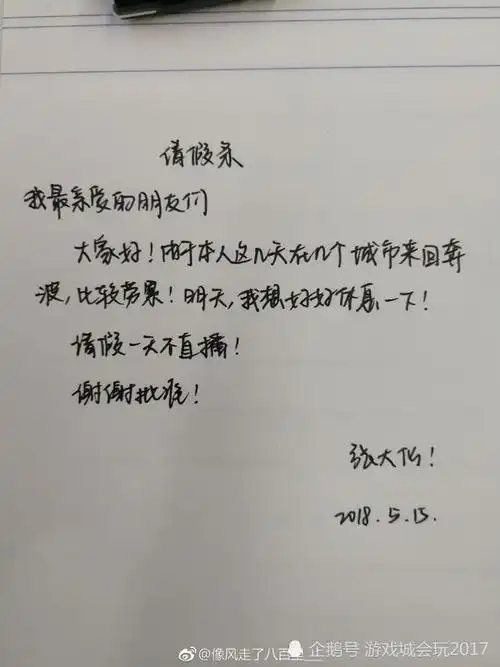 请假条
我最亲爱的朋友们
大家好！由于本人这几天在几个城市来回奔
波，比较劳累！明天，我想好好休息一下！
请假一天不直播！
谢谢批准！
张大仙！
2018.5.15.
@像风走了八百里
企鹅号 游戏城会玩2017